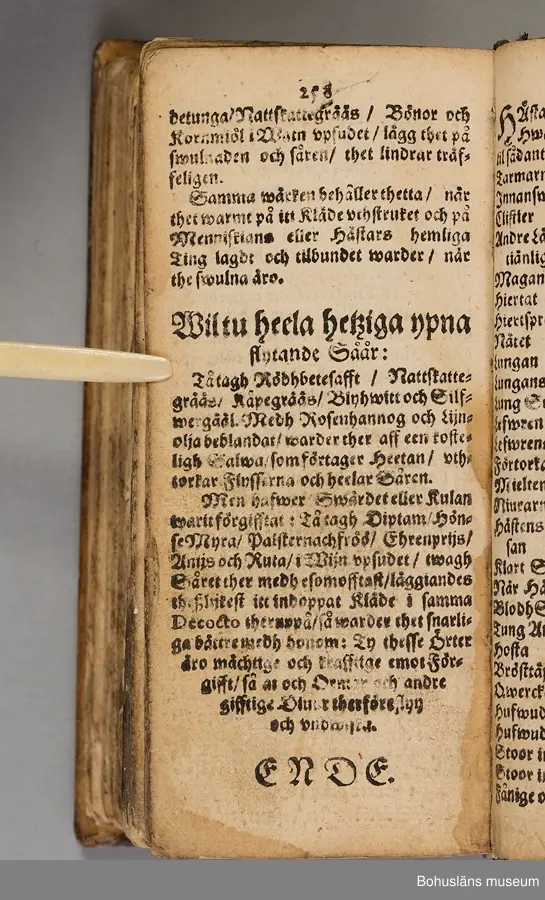 258
betunga/Nattskattegrääs / Bönor och
Kornmiöl i Watn vpsudet / lägg thet på
swulnaden och såren/ thet lindrar träf-
feligen.
Samma wärken behåller thetta / når
thet warmt på itt Kläde vthstruket och på
Menniskians eller Hästars hemliga
Ting lagdt och tilbundet warder / når
the swulna äro.
Wiltu heela hetziga ypna
flytande Såår:
Tå tagh Rödhbetesafft / Nattskatte-
grääs/ Käpegrääs/ Blyhwitt och Silf-
wergääsl. Medh Rosenhannog och Lijn-
olja beblandat/ warder ther aff een koste-
ligh Salwa/som förtager Heetan/ vth-
torkar Flysserna och heelar Såren.
Men hafwer Swärdet eller Kulan
warit förgifftat: Tå tagh Diptam/Hön-
se Myra/ Palsternachfröö/ Ehrenprijs/
Anijs och Ruta/i Wijn vpsudet / twagh
Såret ther medh esomofftast/läggiandes
theslijkest itt indoppat Kläde i samma
Decocto theruppå/så warder thet snarli-
ga bättre medh honom: Ty thesse Örter
äro mächtige och krafftige emot För-
gifft/ så at och Ormar och andre
gifftige Diur therföre flyy
och vndwijka.
ENDE.
Hästa
Hwa
til sådant
Tarmarn
Innansw
Clistier
Andre Lä
tiänlig
Magan
Hiertat
Hiertspr
Nätet
Lungan
Lungans
Lung S
Lefwren
Lefwrens
Förtorka
Mielten
Niurarn
Hästens
san
Klart S
När Hä
Blodh S
Tung An
Hosta
Brösttäp
Qwerck
Hufwud
Hufwud
Stoor i
Stoor i
Fånige o
Bohusläns museum